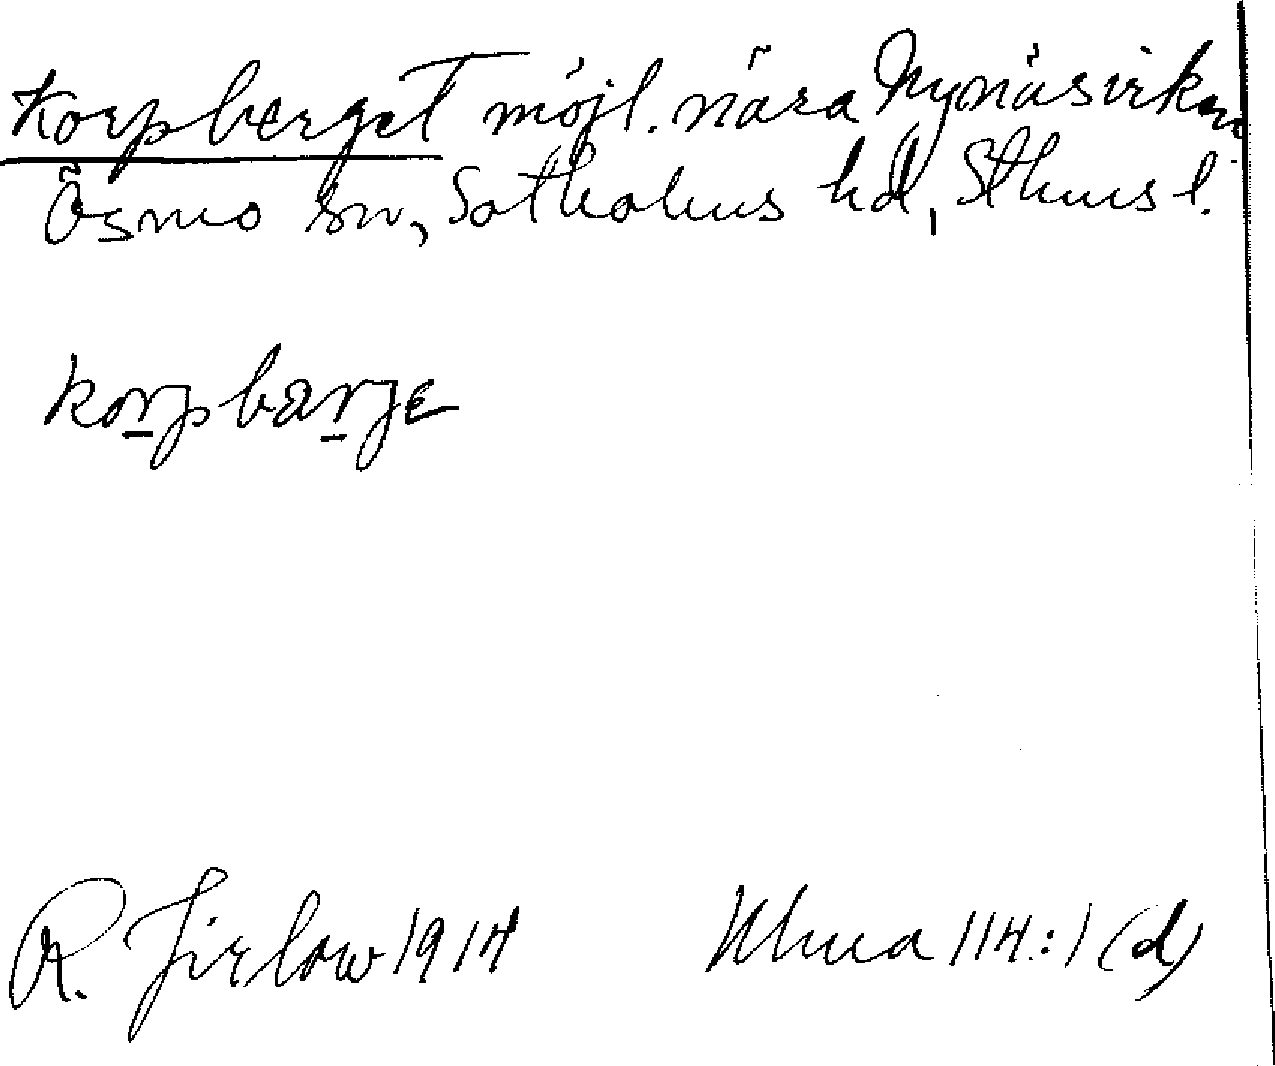 Korpberget möjl. nära Nynäsvirken
Ösmo sn, Sotholms hd, Sthms l.
korpbærje
R. Jirlow 1914 Ulma 114:1 (d)